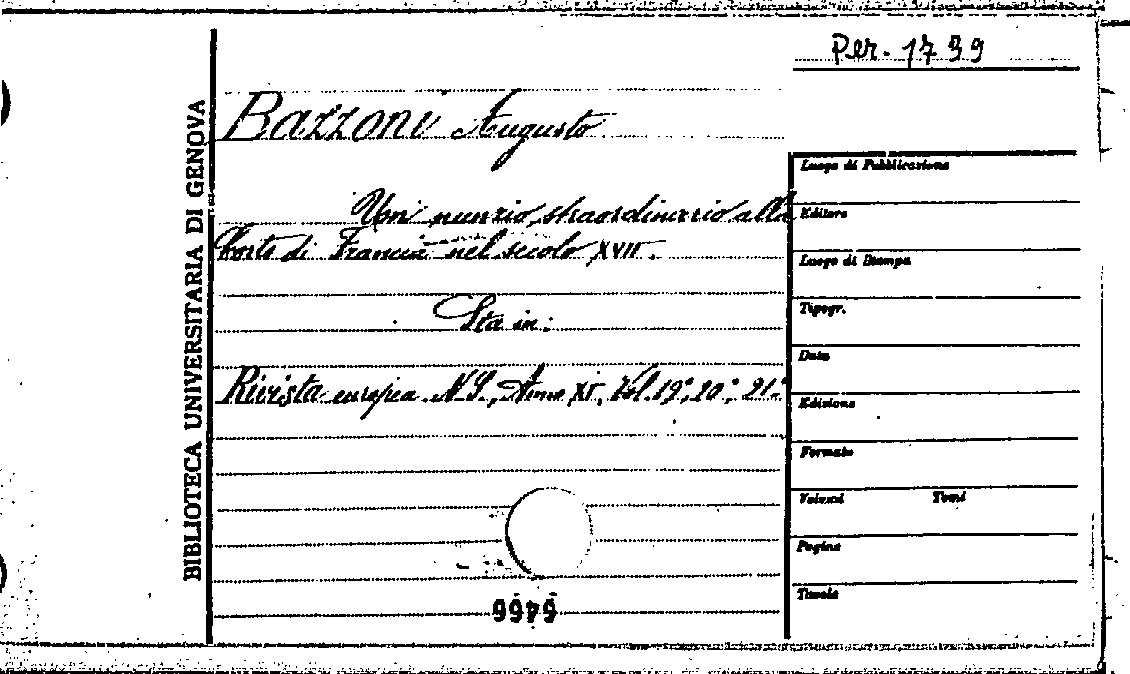 Per. 1739
BIBLIOTECA UNIVERSITARIA DI GENOVA
Bazzoni Augusto
Un nunzio straordinario alla
Corte di Francia nel secolo XVII.
Sta in:
Rivista europea. N.S., Anno XI, Vol. 19°, 20°, 21°
Luogo di Pubblicazione
Editore
Luogo di Stampa
Tipogr.
Data
Edizione
Formato
Volumi Tomi
Pagine
Tavole